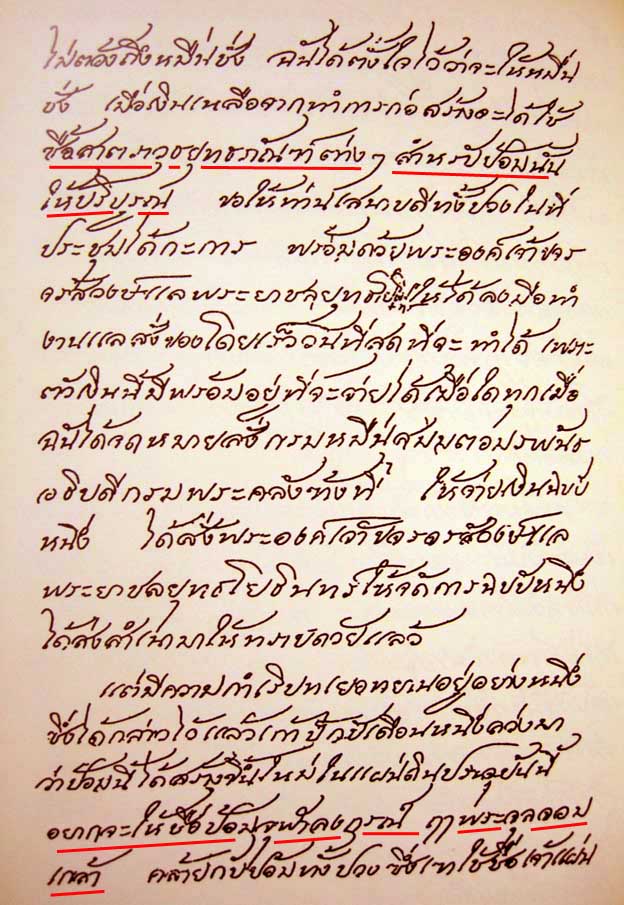 ไม่ตวงถึงหมื่นชั่ง ฉันได้ตั้งใจไว้ว่าจะให้หมื่น
ชั่ง เมื่อเงินเหลือจากทำการก่อสร้างจะได้ใช้
ซื้อสาตราวุธยุทธภัณฑ์ต่าง ๆ สำหรับป้อมนั้น
ให้บริบูรณ์ ขอให้ท่านเสนาบดีทั้งปวงในที่
ประชุมได้กะการ พร้อมด้วยพระองค์เจ้าขจร
จรัสวงษ์แลพระยาชลยุทธโยธินทร์ให้ได้ลงมือทำ
งานแลสั่งของโดยเร็ววันที่สุดที่จะทำได้ เพราะ
ตัวเงินนี้มีพร้อมอยู่ที่จะจ่ายได้เมื่อใดทุกเมื่อ
ฉันได้จดหมายสั่งกรมหมื่นสมมตอมรพันธุ
อธิบดีกรมพระคลังข้างที่ ให้จ่ายเงินฉบับ
หนึ่ง ได้สั่งพระองค์เจ้าขจรจรัสวงษ์แล
พระยาชลยุทธโยธินทร์ให้จัดการฉบับหนึ่ง
ได้ส่งสำเนามาให้ทราบด้วยแล้ว
แต่มีความกำเริบทเยอทยานอยู่อย่างหนึ่ง
ซึ่งได้กล่าวไว้แล้วแต่ เดือนหนึ่งล่วงมา
ว่าป้อมนี้ได้สร้างขึ้นใหม่ในแผ่นดินประจุบันนี้
อยากจะให้ชื่อป้อมจุฬาลงกรณ์ ฤๅพระจุลจอม
เกล้า คล้ายกับป้อมทั้งปวง ซึ่งเขาใช้ชื่อเจ้าแผ่น